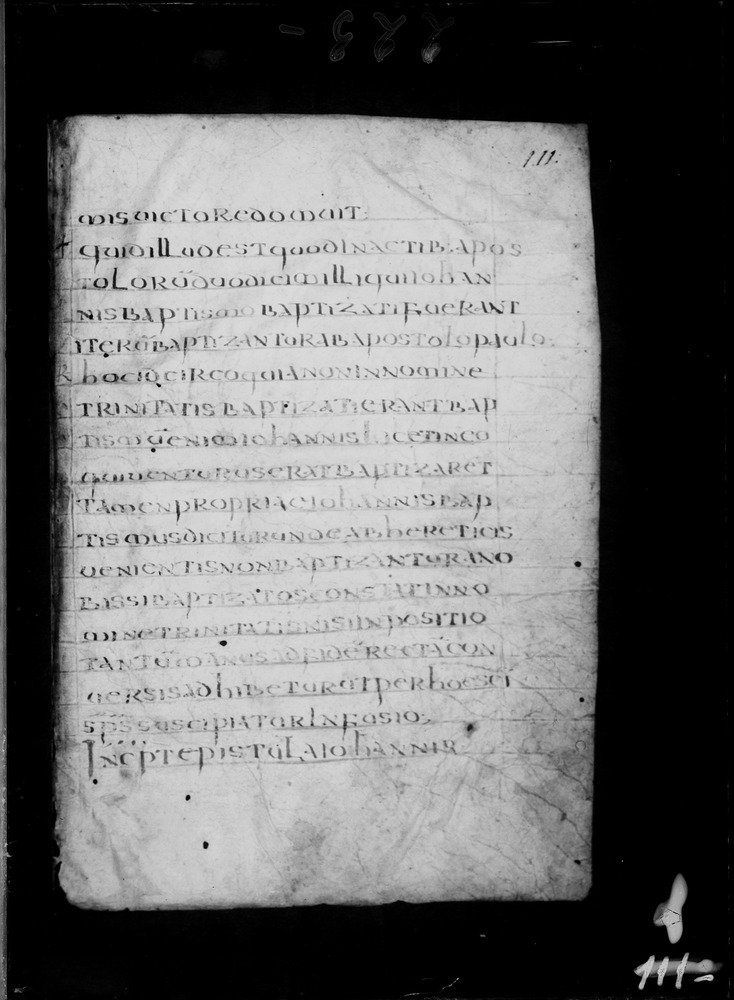 223 -
111.
mis victore domuit.
quid illud est quod in actib: apos
toloru duodicim illi qui iohan
nis baptismo baptizati fuerant
iteru baptizantur ab apostolo paulo.
hoc idcirco quia non in nomine
trinitatis baptizati erant bap
tismi venim iohannis licet in eo
qui venturus erat baptizaret
tamen propriae iohannis bap
tismus dicitur unde ab hereticis
venientis non baptizantur a no
bis si baptizatos constat in no
mine trinitatis nisi inpositio
tantu manus ad fide recta con
versis adhibetur ut per hoc sci
sps suscipiatur infusio.
Incpt epistula iohannis
111=